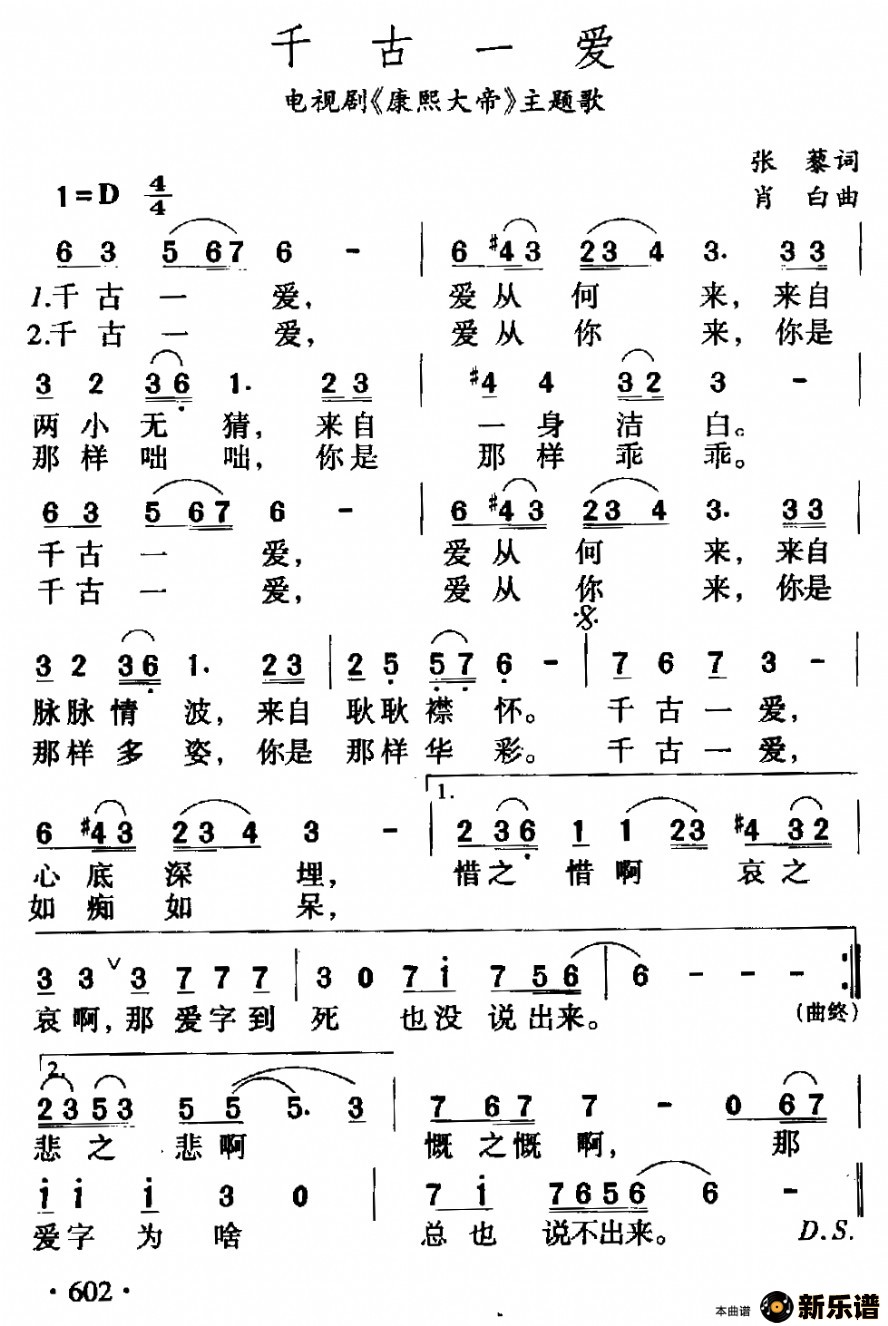 千古一爱
电视剧《康熙大帝》主题歌
张藜词
1=D 4/4
肖白曲
6 3 5 67 6 - | 6 #43 23 4 3. 33 |
1.千古一爱, 爱从何来, 来自
2.千古一爱, 爱从你来, 你是
3 2 36 1. 23 | #4 4 32 3 - |
两小无猜, 来自一身洁白。
那样咄咄, 你是那样乖乖。
6 3 5 67 6 - | 6 #43 23 4 3. 33 |
千古一爱, 爱从何来, 来自
千古一爱, 爱从你来, 你是
3 2 36 1. 23 | 2 5 57 6 - | 7 6 7 3 - |
脉脉情波, 来自耿耿襟怀。千古一爱,
那样多姿, 你是那样华彩。千古一爱,
1.
6 #43 23 4 3 - | 2 36 1 1 23 #4 32 |
心底深埋, 惜之惜啊哀之
如痴如呆,
3 3 ∨ 3 7 7 7 | 3 0 7 1 7 56 | 6 - - - :||
哀啊, 那爱字到死也没说出来。 (曲终)
2.
23 53 5 5 5. 3 | 7 67 7 - 0 67 |
悲之悲啊 慨之慨啊, 那
1 1 1 3 0 | 7 1 7656 6 - ||
爱字为啥 总也说不出来。 D.S.
·602·
本曲谱 新乐谱